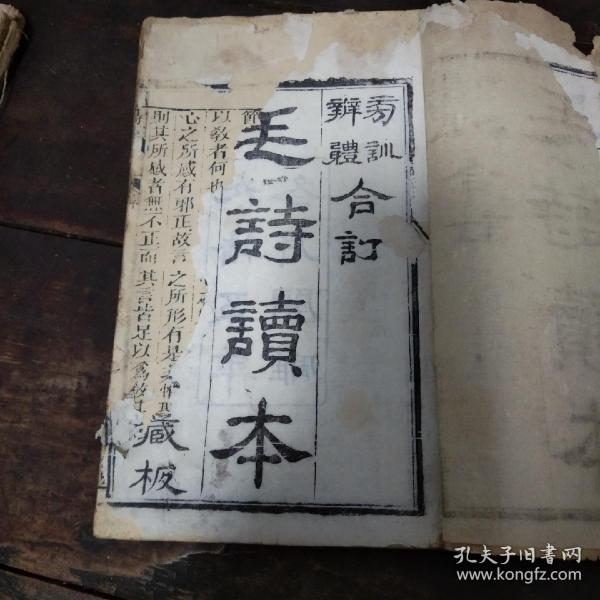 旁訓
辨體
合訂
毛詩讀本
藏板
以敎者何也
心之所感有邪正故言之所形有是
則其所感者無不正而其言皆足以爲敎
孔夫子旧书网
www.kongfz.com